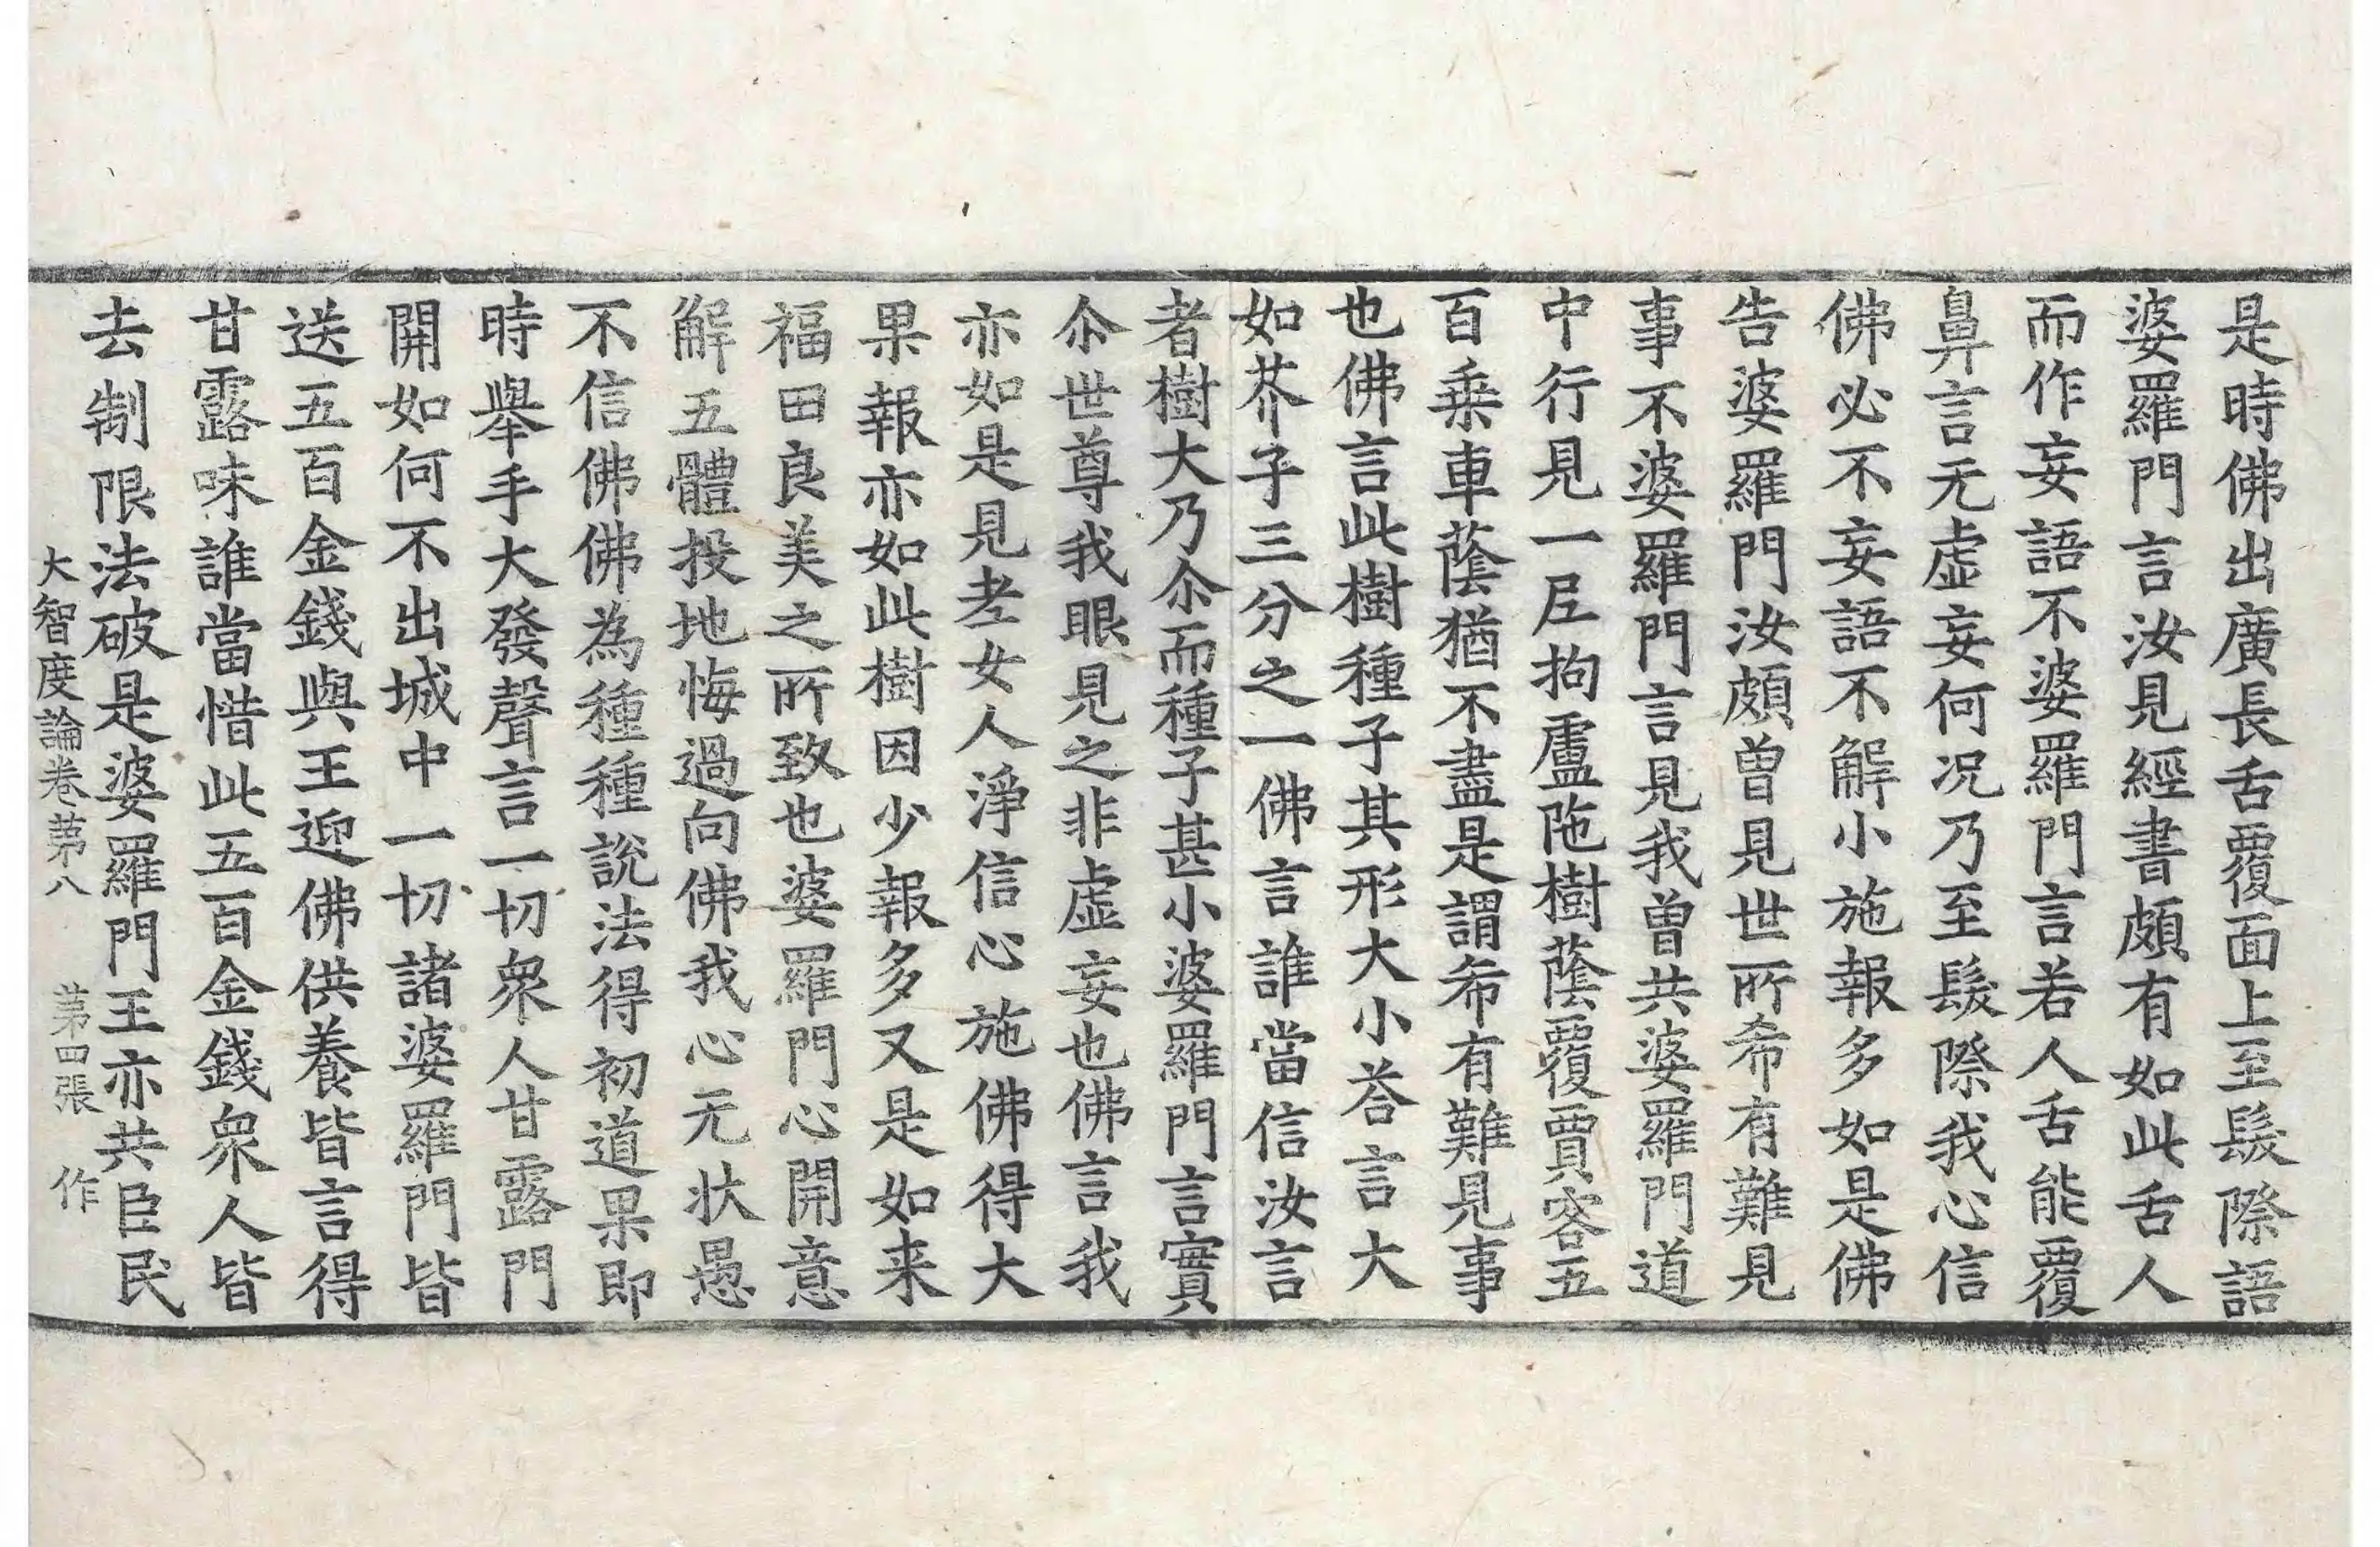 是時佛出廣長舌覆面上至髮際語
婆羅門言汝見經書頗有如此舌人
而作妄語不婆羅門言若人舌能覆
鼻言无虛妄何況乃至髮際我心信
佛必不妄語不解小施報多如是佛
告婆羅門汝頗曾見世所希有難見
事不婆羅門言見我曾共婆羅門道
中行見一尼拘盧陁樹蔭覆賈客五
百乘車蔭猶不盡是謂希有難見事
也佛言此樹種子其形大小荅言大
如芥子三分之一佛言誰當信汝言
者樹大乃尒而種子甚小婆羅門言實
尒世尊我眼見之非虛妄也佛言我
亦如是見老女人淨信心施佛得大
果報亦如此樹因少報多又是如来
福田良美之所致也婆羅門心開意
解五體投地悔過向佛我心无狀愚
不信佛佛為種種說法得初道果即
時舉手大發聲言一切衆人甘露門
開如何不出城中一切諸婆羅門皆
送五百金錢與王迎佛供養皆言得
甘露味誰當惜此五百金錢衆人皆
去制限法破是婆羅門王亦共臣民
大智度論卷第八 第四張 作